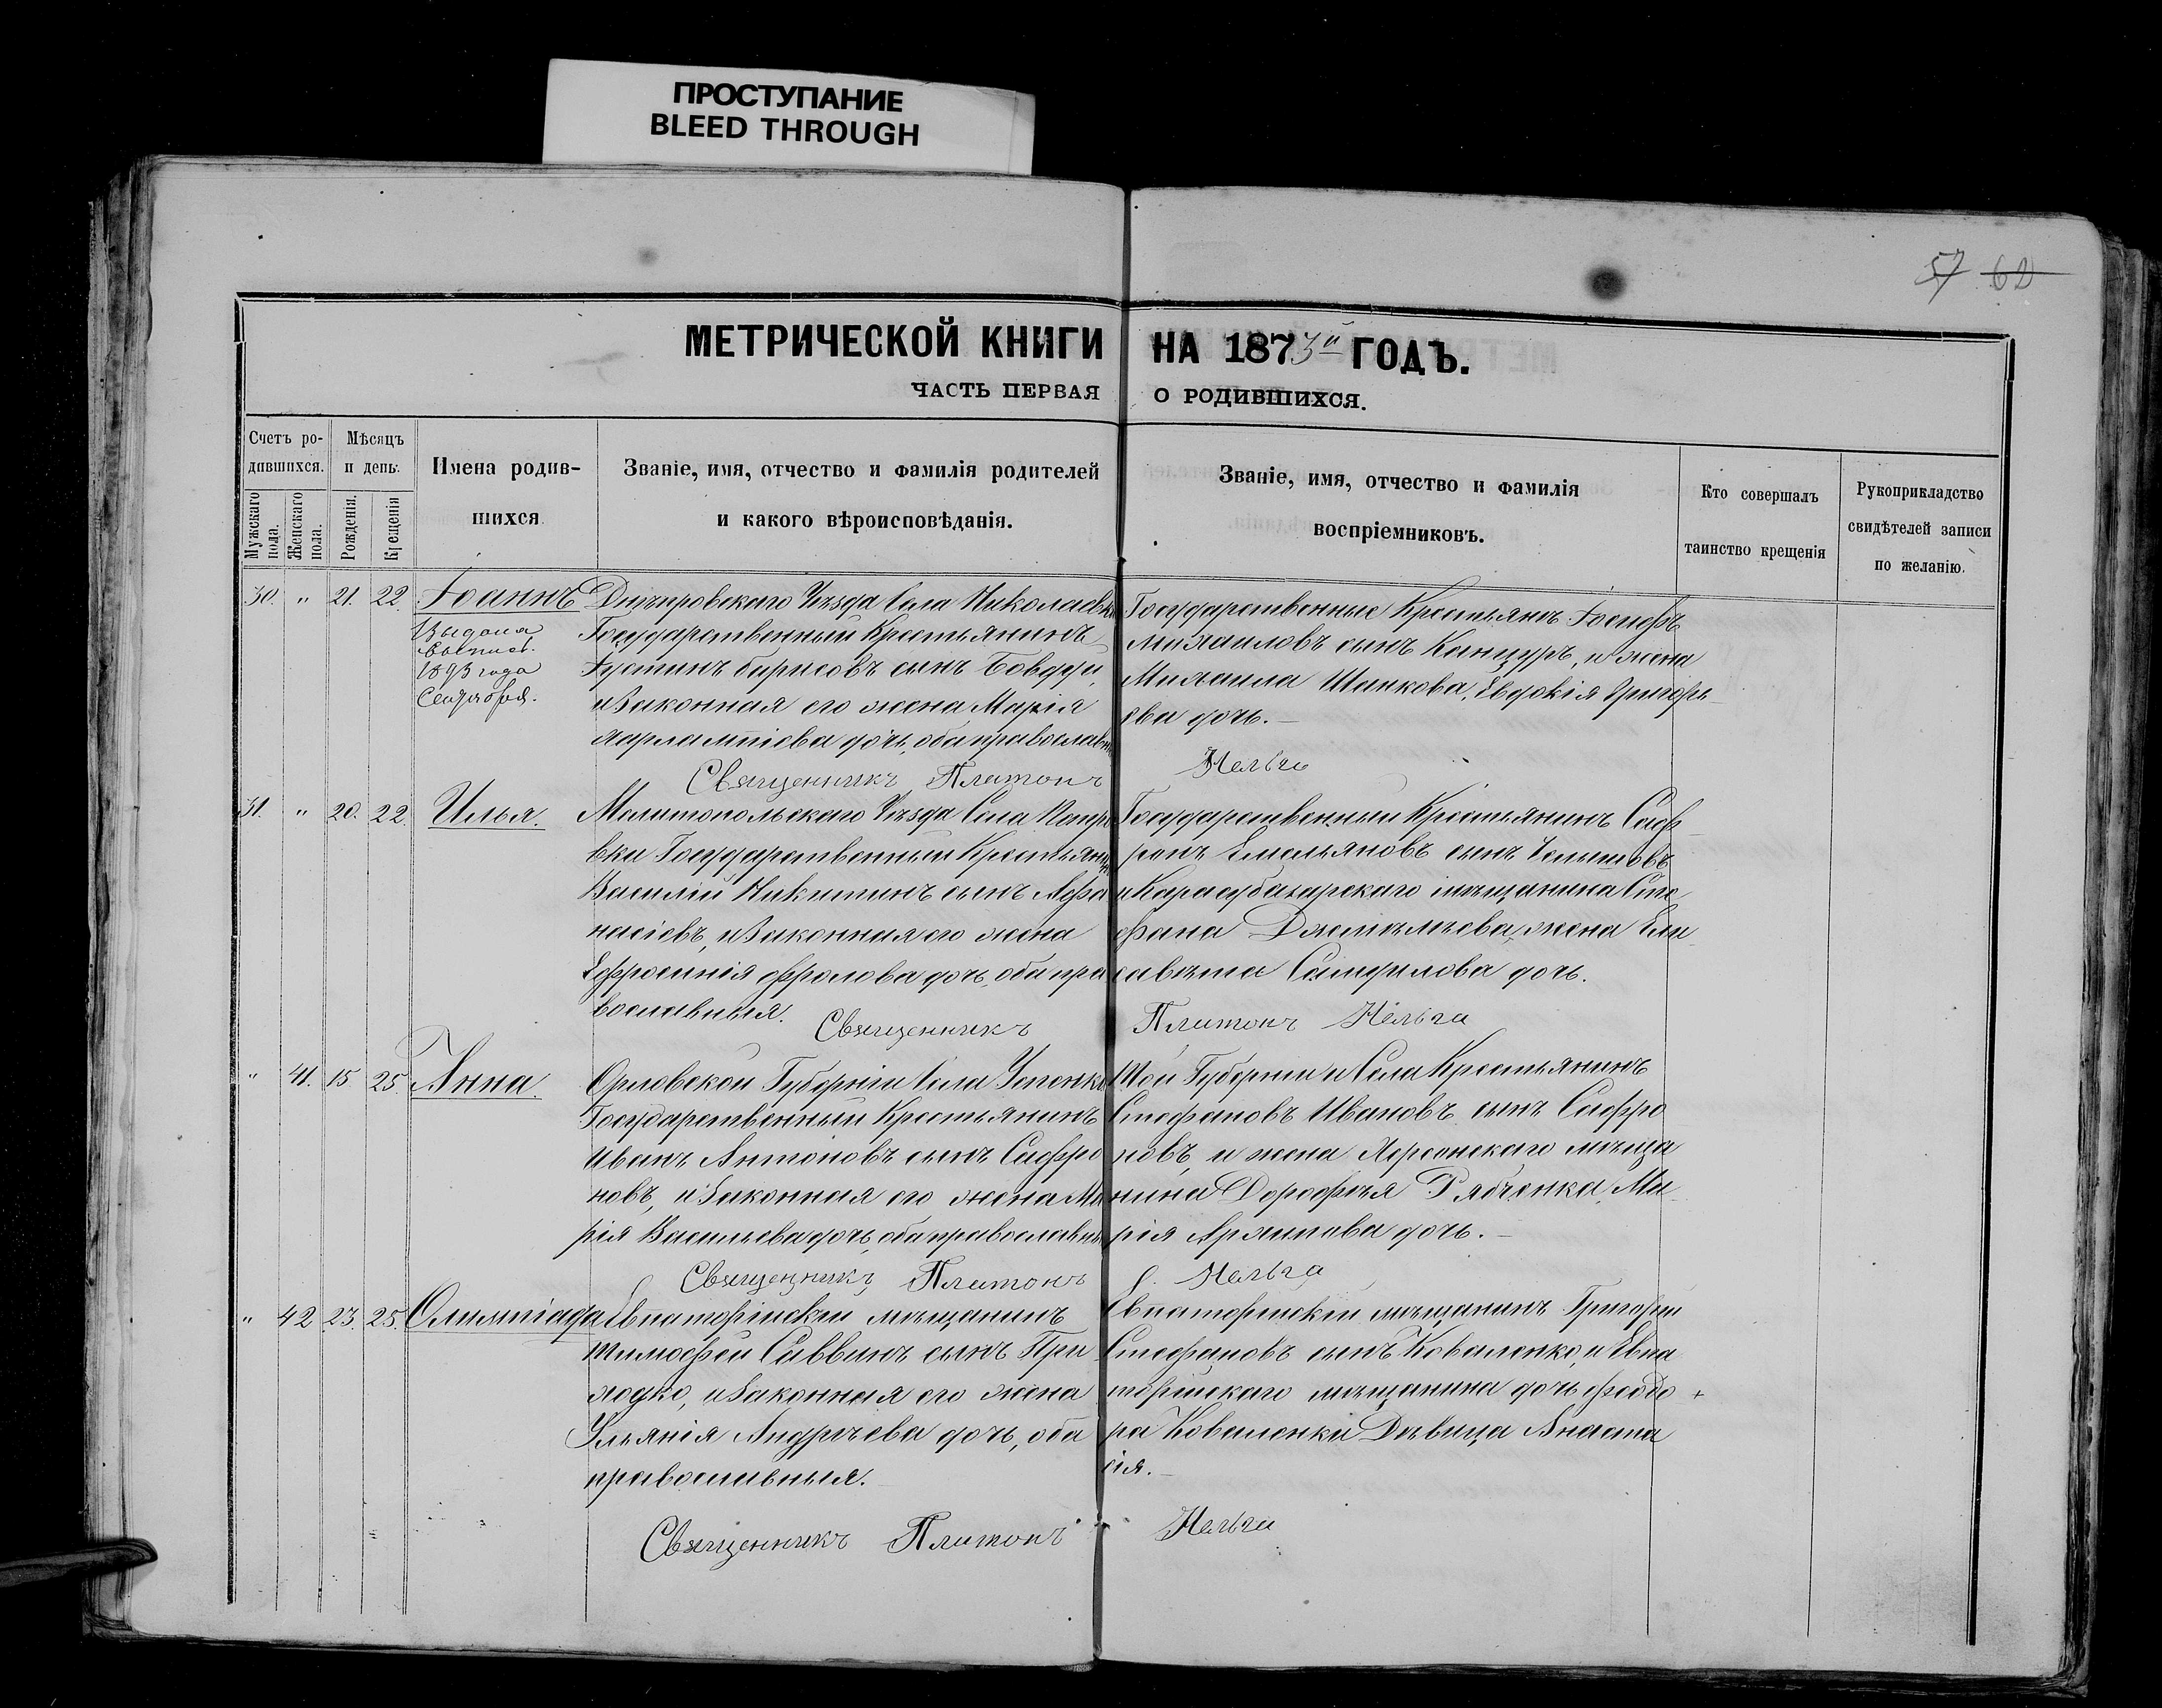 ПРОСТУПАНИЕ
BLEED THROUGH
57 62
МЕТРИЧЕСКОЙ КНИГИ НА 1873й ГОДЪ.
ЧАСТЬ ПЕРВАЯ О РОДИВШИХСЯ.
Счетъ ро-
дившихся.
Мужскаго
пола.
Женскаго
пола.
Мѣсяцъ
и день.
Рожденія.
Крещенія
Имена родив-
шихся
Званіе, имя, отчество и фамилія родителей
и какого вѣроисповѣданія.
Званіе, имя, отчество и фамилія
воспріемниковъ.
Кто совершалъ
таинство крещенія
Рукоприкладство
свидѣтелей записи
по желанію.
30. " 21. 22. Іоаннъ
Выдана
1893 года
Сентября.
Днѣпровскаго Уѣзда Села Николаевки
Государственный Крестьянинъ
Іустинъ Борисовъ сынъ
и Законная его жена Марія
Харлампіева дочь, оба православны
Государственные Крестьянъ Іосифъ
Михаиловъ сынъ Канцуръ, и жена
Михаила Шанкова, Евдокія Григорь
ева дочь.
Священникъ Платонъ
31. " 20. 22. Илья.
Мелитопольскаго Уѣзда Села Петро
вки Государственный Крестьянин
Василій Никитинъ сынъ Афа
насіевъ, и Законная его жена
Ефросинія Фролова дочь, оба пра
вославныя.
Государственный Крестьянинъ Саф
ронъ Емельяновъ сынъ
и Карасубазарскаго мѣщанина Сте
фана жена Ели
савѣта дочь.
Священникъ Платонъ
" 41. 15 25. Анна.
Орловской Губерніи Села Успенка
Государственный Крестьянинъ
Иванъ Антоновъ сынъ Сафро
новъ, и Законная его жена Ма
рія Васильева дочь, оба православны
Той Губерніи и Села Крестьянинъ
Стефановъ Ивановъ сынъ Сафро
новъ, и жена Херсонскаго мѣща
нина Дорофѣя Рябченка, Ма
рія Архипова дочь.
Священникъ Платонъ
" 42 23. 25. Олимпіада
Евпаторійскій мѣщанинъ
Тимофей Саввинъ сынъ При
ходко, и Законная его жена
Ульянія Андрѣева дочь, оба
православныя.
Евпаторійскій мѣщанинъ Григорій
Стефановъ сынъ Коваленко, и Евпа
торійскаго мѣщанина дочь Феодо
ра Коваленки Дѣвица Анаста
сія.
Священникъ Платонъ